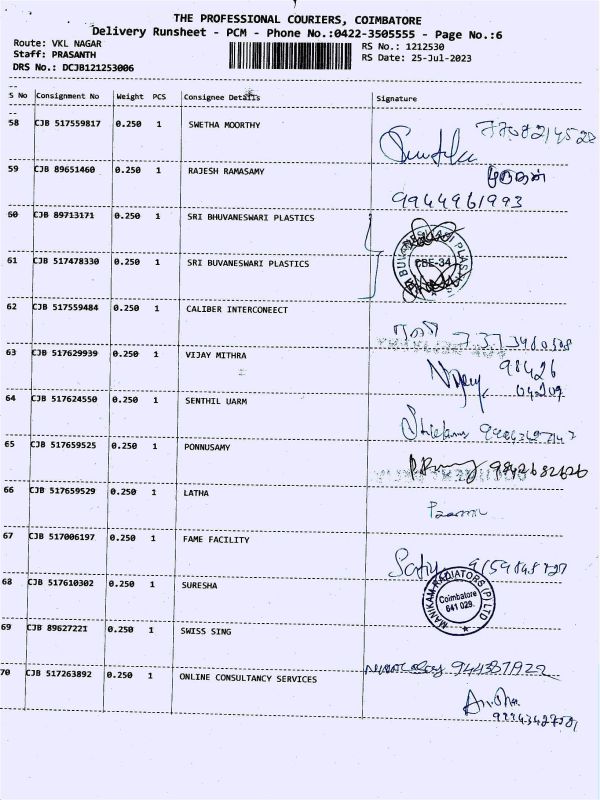 THE PROFESSIONAL COURIERS, COIMBATORE
Delivery Runsheet - PCM - Phone No.:0422-3505555 - Page No.:6
Route: VKL NAGAR
RS No.: 1212530
Staff: PRASANTH
RS Date: 25-Jul-2023
DRS No.: DCJB121253006
--
S No Consignment No Weight PCS Consignee Details Signature
--
58 CJB 517559817 0.250 1 SWETHA MOORTHY
59 CJB 89651460 0.250 1 RAJESH RAMASAMY
9944961993
60 CJB 89713171 0.250 1 SRI BHUVANESWARI PLASTICS
61 CJB 517478330 0.250 1 SRI BUVANESWARI PLASTICS
CBE-34
62 CJB 517559484 0.250 1 CALIBER INTERCONEECT
63 CJB 517629939 0.250 1 VIJAY MITHRA
98426
64 CJB 517624550 0.250 1 SENTHIL UARM
65 CJB 517659525 0.250 1 PONNUSAMY
9842682626
66 CJB 517659529 0.250 1 LATHA
67 CJB 517006197 0.250 1 FAME FACILITY
68 CJB 517610302 0.250 1 SURESHA
MANIKAM RADIATORS (P) LTD
Coimbatore
641 029.
69 CJB 89627221 0.250 1 SWISS SING
70 CJB 517263892 0.250 1 ONLINE CONSULTANCY SERVICES